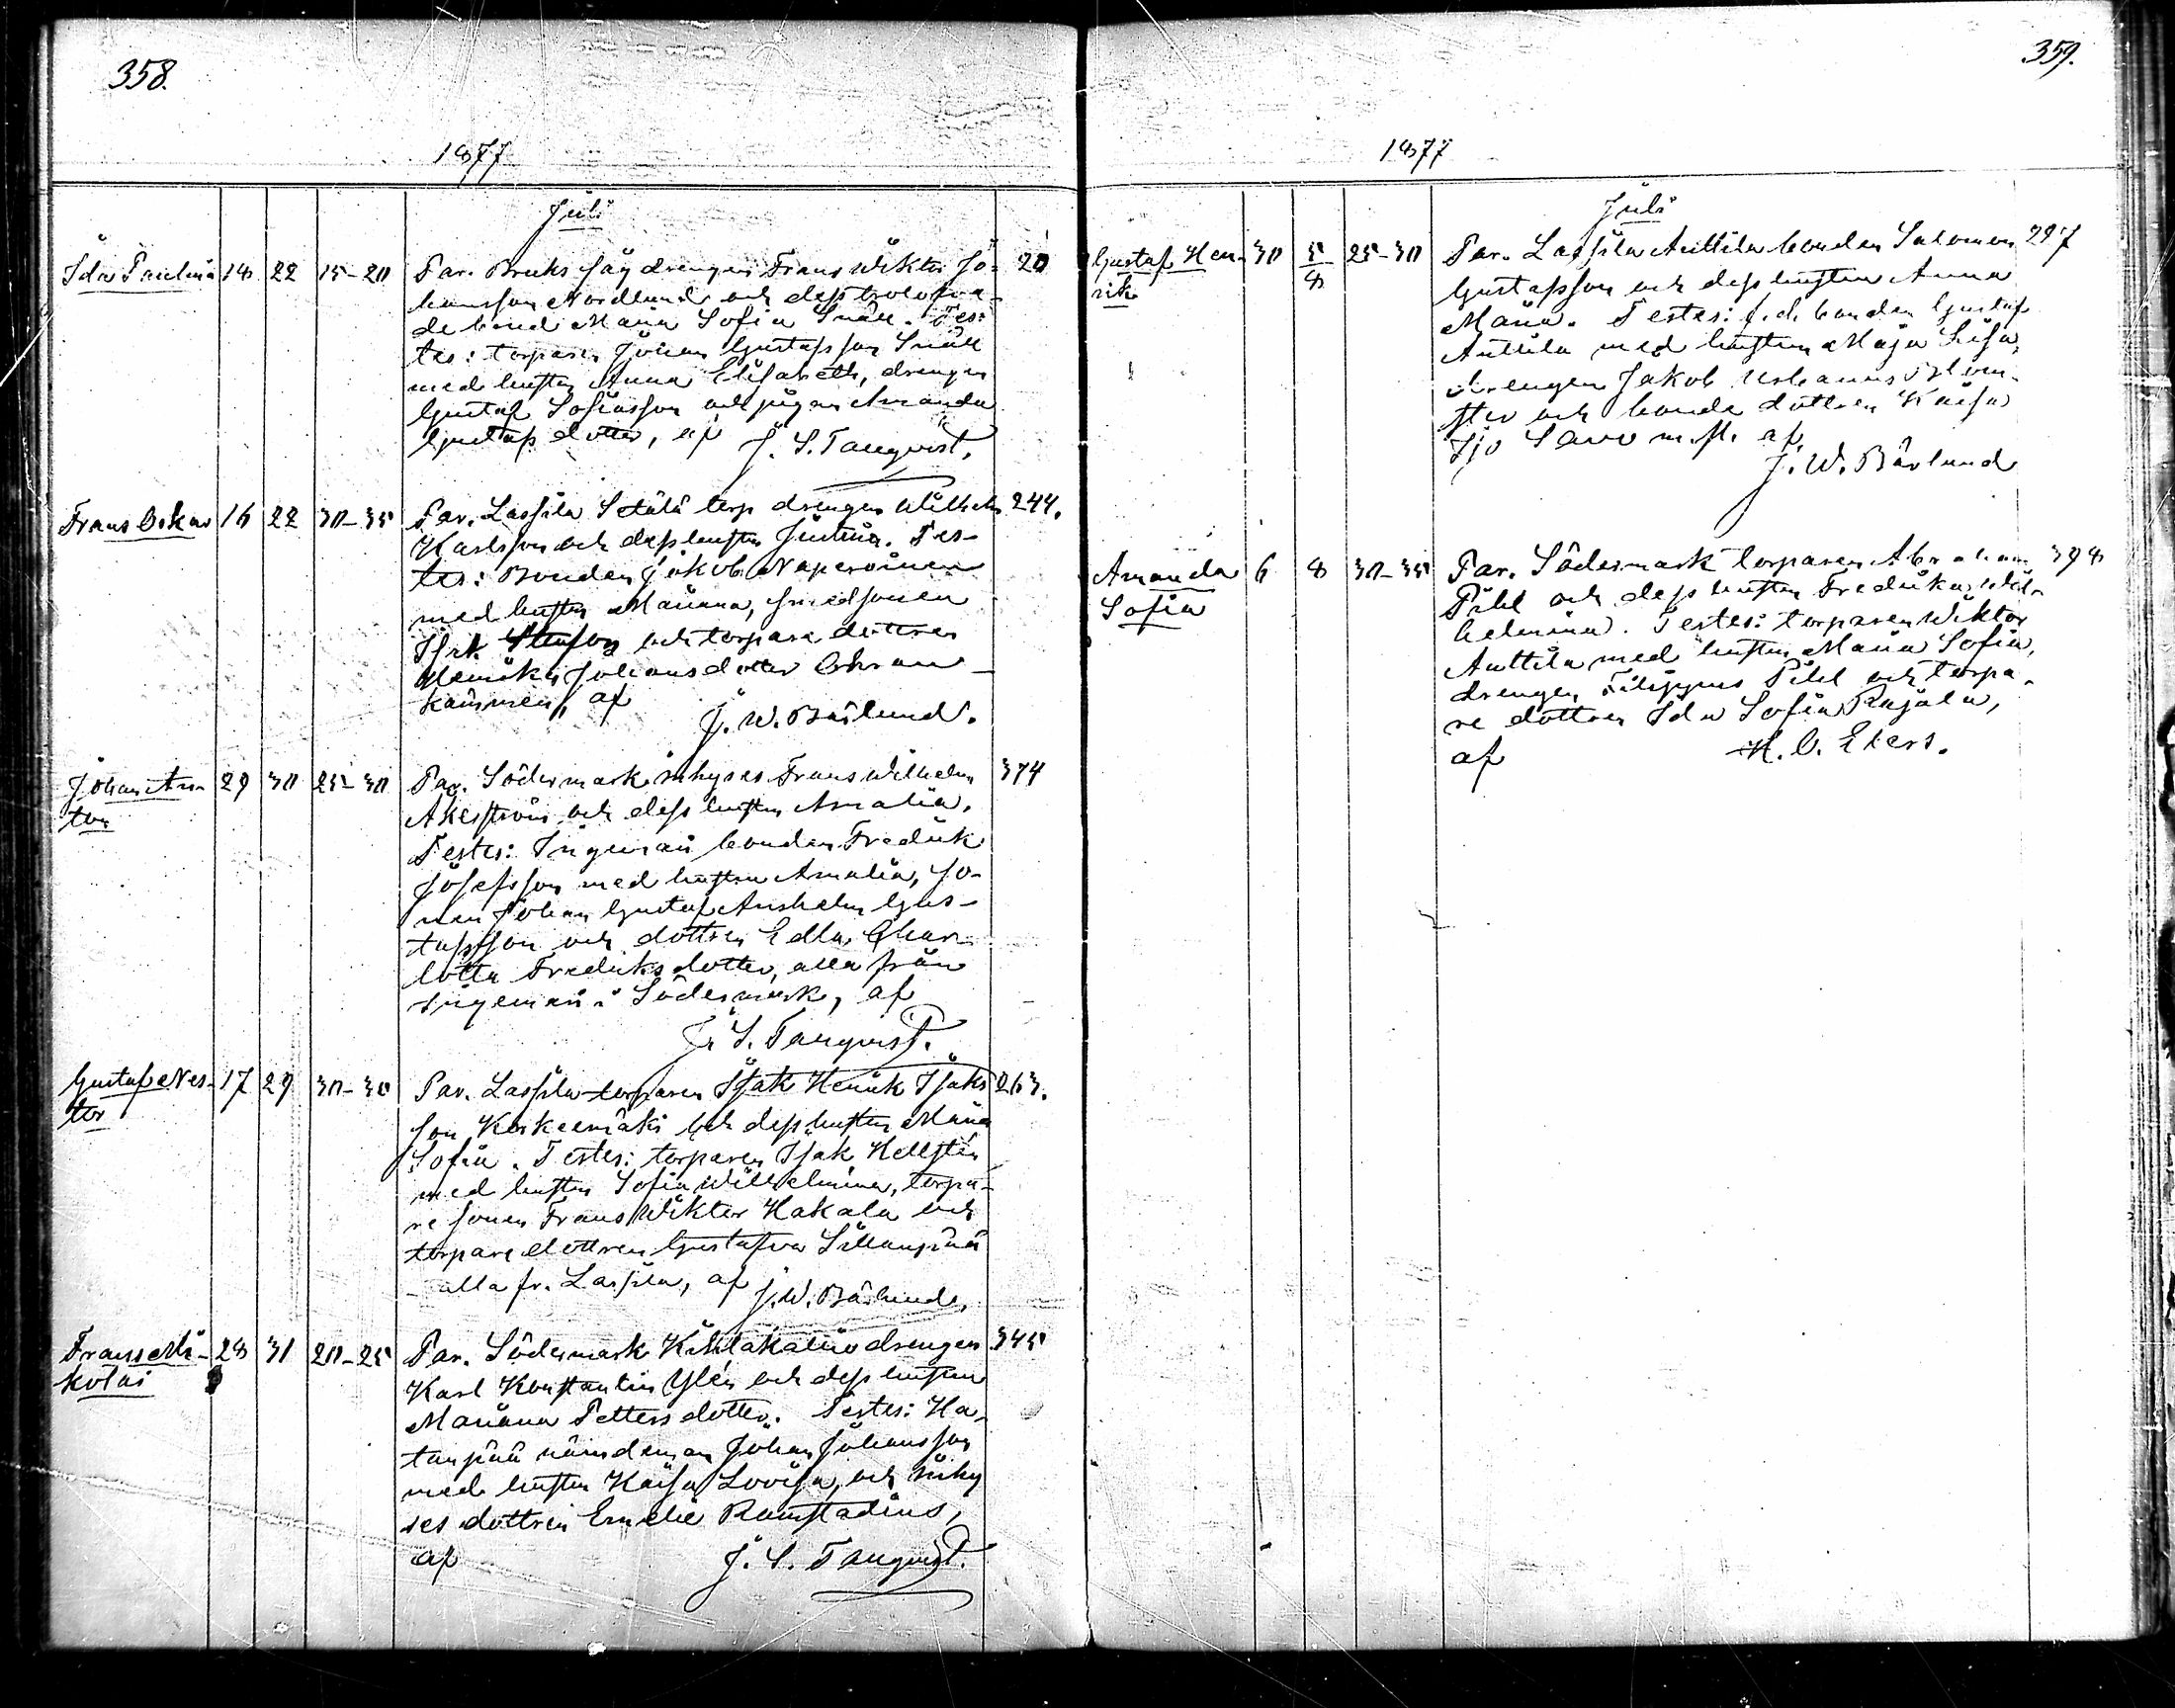 358.
1877
Juli
Ida Paulina 18 22 15-20 Par. Bruks sågdrengen Frans Wiktor Jo- 20
hansson Nordlund och dess trolofva-
de brud Maria Sofia Snäll. Tes-
tes: torparen Johan Gustafsson Snäll
med hustru Anna Elisabeth, drengen
Gustaf Sofiasson och pigan Amanda
Gustafsdotter, af J. S. Tanqvist.
Frans Oskar 16 22 30-35 Par. Lassila Setälä torp drengen Wilhelm 244.
Karlsson och dess hustru Justina. Tes-
tes: Bonden Jakob Naperoinen
med hustru Mariana, smedsonen
Isak och torpare dottren
Henrika Johansdotter Ohran-
kämmen, af
J. W. Bärlund.
Johan An- 29 30 25-30 Par. Södermark inhyses Frans Wilhelm 374
ton
Åkerström och dess hustru Amalia.
Testes: Ingemari bonden Fredrik
Josefsson med hustru Amalia, so-
nen Johan Gustaf Anshelm Gus-
tafsson och dottren Edla Char-
lotta Fredriksdotter, alla från
Ingemari i Södermark, af
J. S. Tanqvist.
Gustaf Nes- 17 29 30-30 Par. Lassila torparen Isak Henrik Isaks 263.
tor
son Koskeemäki och dess hustru Maria
Sofia. Testes: torparen Isak Hellstén
med hustru Sofia Wilhelmina, torpa-
re sonen Frans Wiktor Hakala och
torpare dottren Gustafva Sillanpää
alla fr. Lassila, af J. W. Bärlund.
Frans Ni- 28 31 20-25 Par. Södermark Kihlakalivo drengen 345
kolai
Karl Konstantin Ylén och dess hustru
Mariana Pettersdotter. Testes: Ha-
tanpää nämndeman Johan Johansson
med hustru Kaisa Lovisa, och inhy
ses dottren Emelie Ramstadius,
af J. S. Tanqvist.
359.
1877
Juli
Gustaf Hen- 30 5/8 25-30 Par. Lassila Anttila bonden Salomon 297
rik
Gustafsson och dess hustru Anna
Maria. Testes: f.d. bonden Gustaf
Anttila med hustru Maja Lisa,
drengen Jakob Urbanus Blom-
ster och bonde dottren Kaisa
Iso Savo m. fl. af
J. W. Bärlund
Amanda 6 8 30-35 Par. Södermark torparen Abraham 398
Sofia
Pihl och dess hustru Fredrika Wil-
helmina. Testes: torparen Wiktor
Anttila med hustru Maria Sofia,
drengen Filippus Pihl och torpa-
re dottren Ida Sofia Rajala,
af H. O. Ekers.